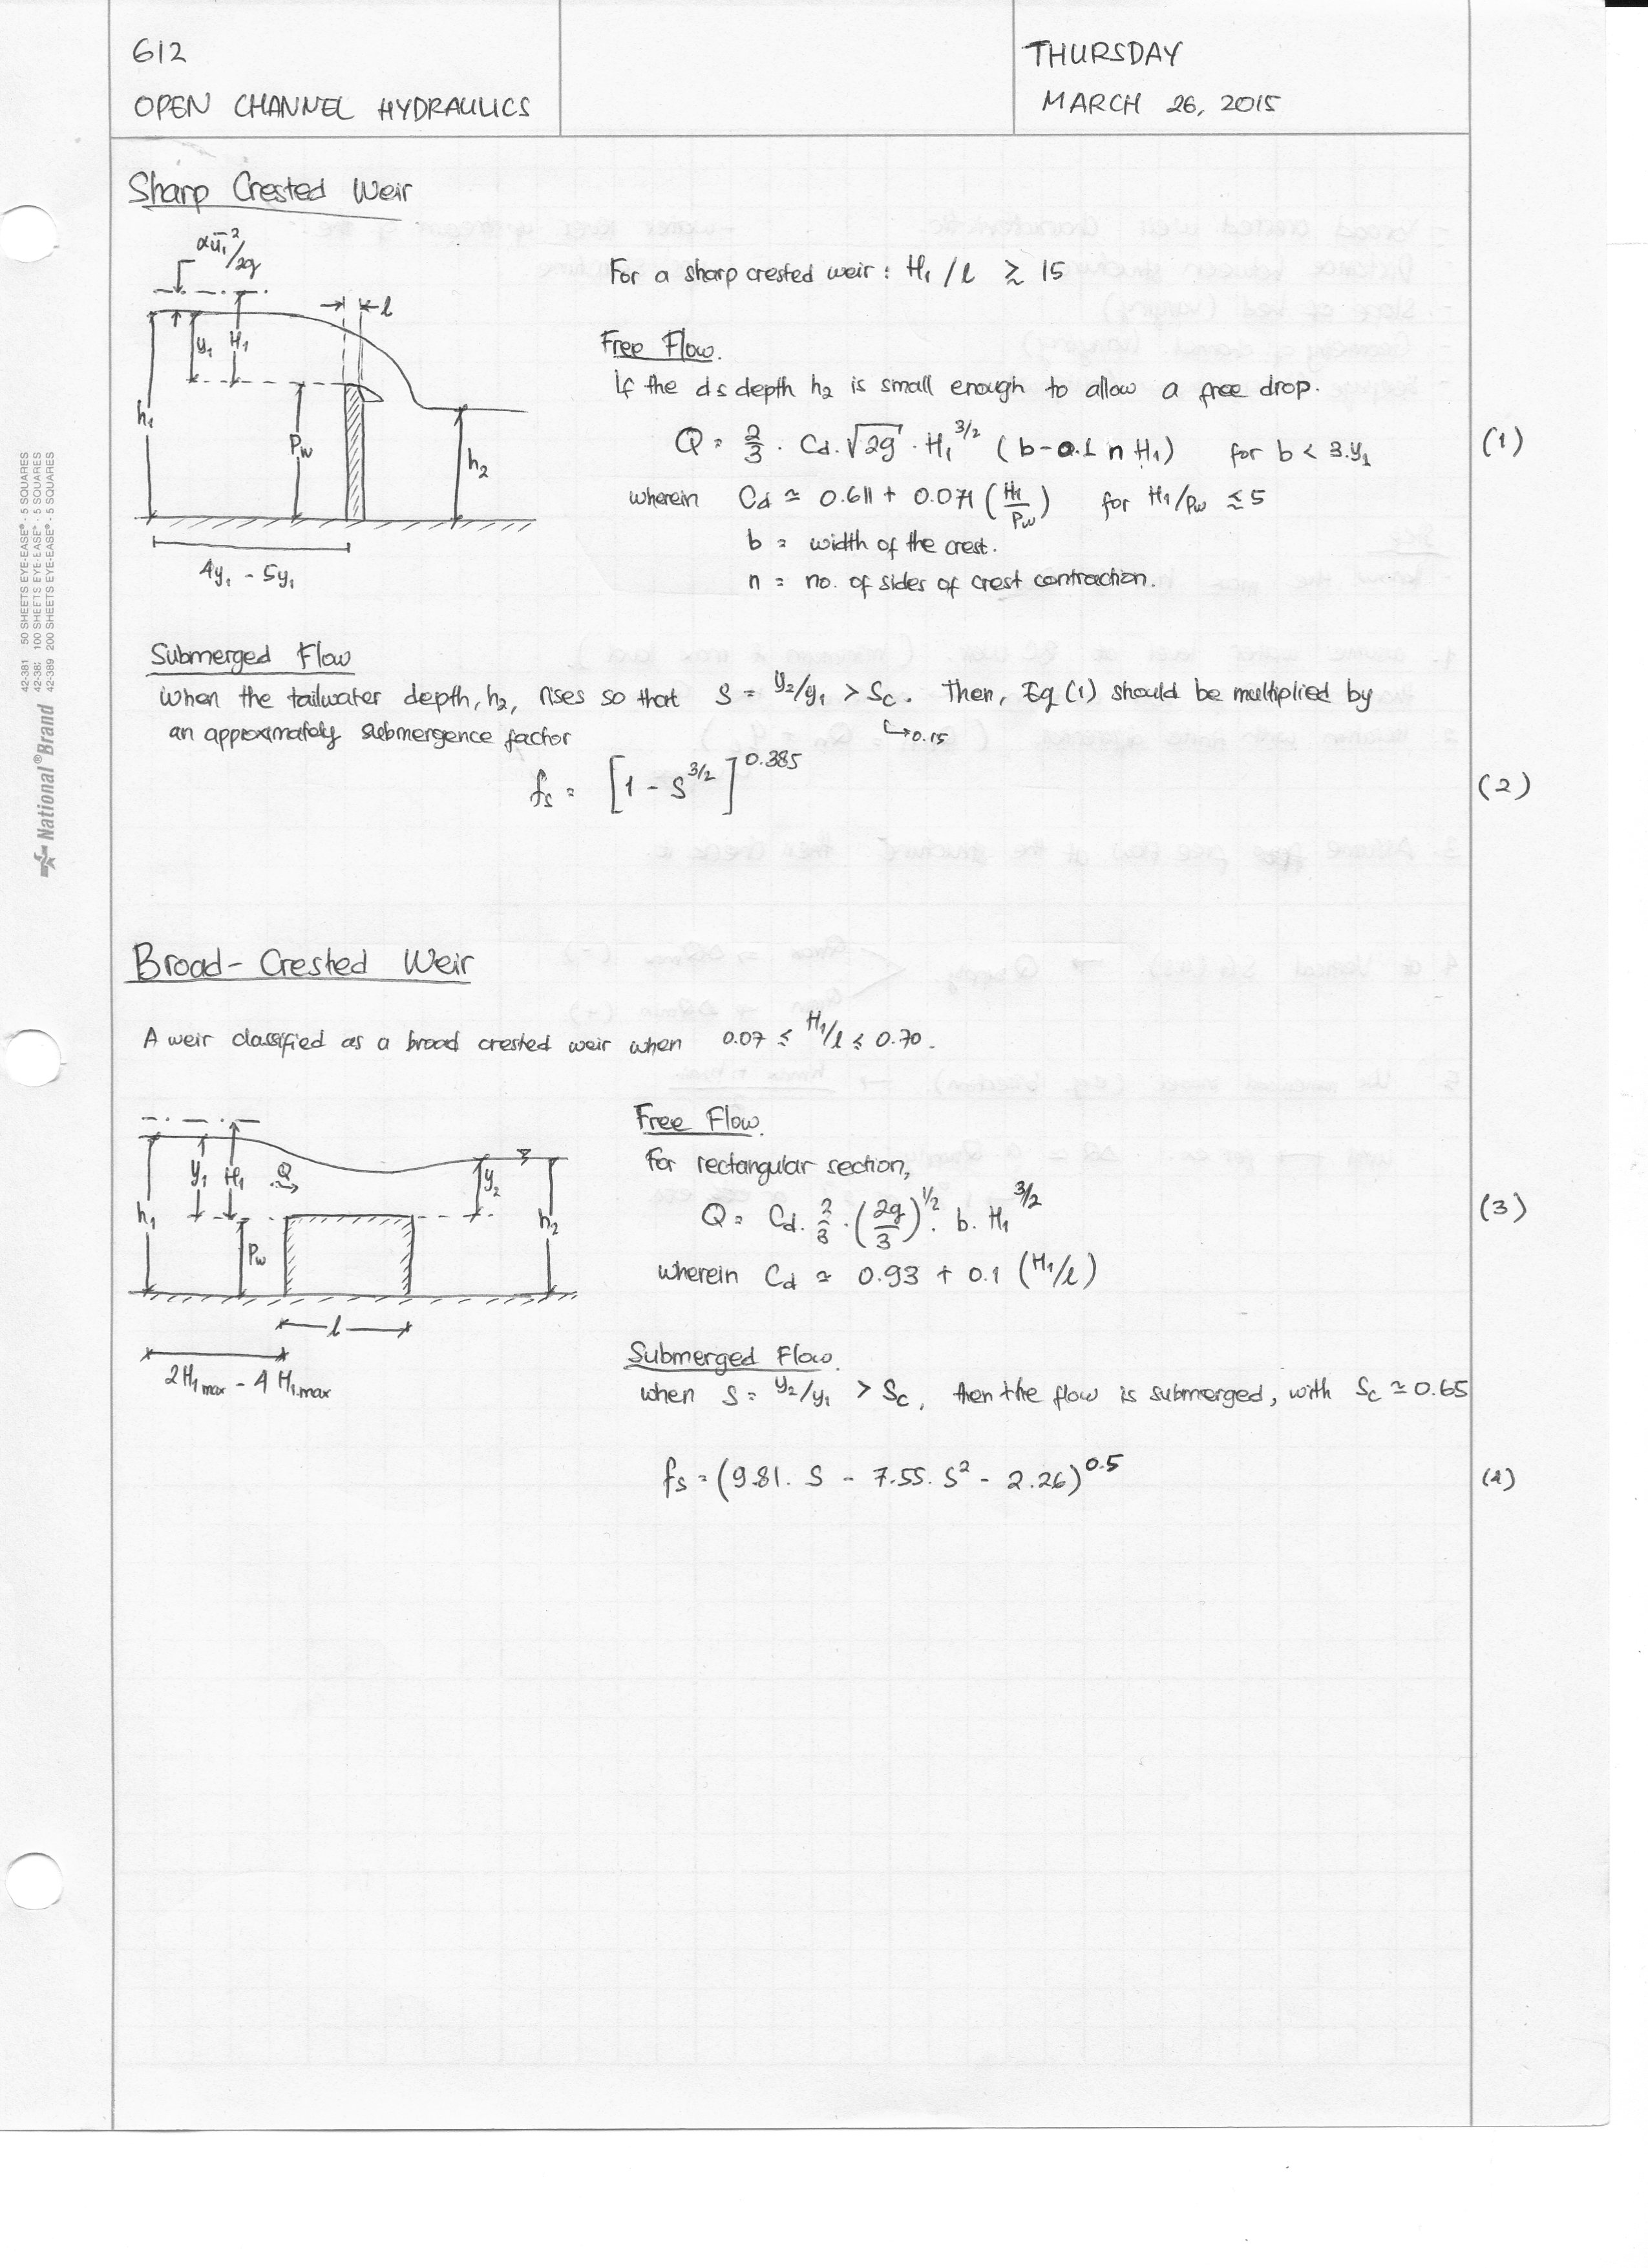 612
OPEN CHANNEL HYDRAULICS
THURSDAY
MARCH 26, 2015
Sharp Crested Weir
αū₁²/2g
l
y₁ H₁
h₁
Pw
h₂
4y₁ - 5y₁
For a sharp crested weir : H₁/l ≳ 15
Free Flow.
if the ds depth h₂ is small enough to allow a free drop.
Q = 2/3 · Cd · √2g · H₁^3/2 (b-0.1 n H₁) for b < 3.y₁ (1)
wherein Cd ≃ 0.611 + 0.071 (H₁/Pw) for H₁/Pw ≲ 5
b = width of the crest.
n = no. of sides of crest contraction.
Submerged Flow
When the tailwater depth, h₂, rises so that S = y₂/y₁ > Sc. Then, Eq (1) should be multiplied by
↳ 0.15
an approximately submergence factor
fs = [1 - S^3/2]^0.385 (2)
Broad-Crested Weir
A weir classified as a broad crested weir when 0.07 ≤ H₁/l ≤ 0.70.
y₁ H₁ Q y₂
h₁ h₂
Pw
l
2H₁max - 4 H₁.max
Free Flow.
For rectangular section,
Q = Cd. 2/3 · (2g/3)^1/2 · b. H₁^3/2 (3)
wherein Cd ≃ 0.93 + 0.1 (H₁/l)
Submerged Flow.
when S = y₂/y₁ > Sc, then the flow is submerged, with Sc ≃ 0.65
fs = (9.81. S - 7.55. S² - 2.26)^0.5
42-381 50 SHEETS EYE-EASE® - 5 SQUARES
42-382 100 SHEETS EYE-EASE® - 5 SQUARES
42-389 200 SHEETS EYE-EASE® - 5 SQUARES
National® Brand